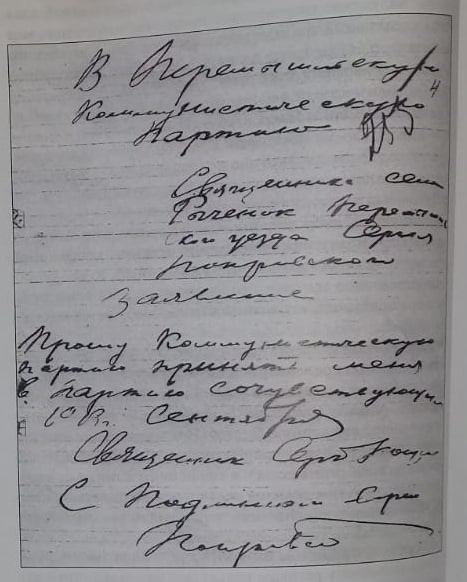 В Перемышльскую
4
Коммунистическую
Партию
Священника села
Рыченок Перемышль
ского уезда Сергия
Покровского
Заявление
Прошу Коммунистическую
партию принять меня
в партию сочувствующим
Сентября
Священник Сергий
С Подлинным